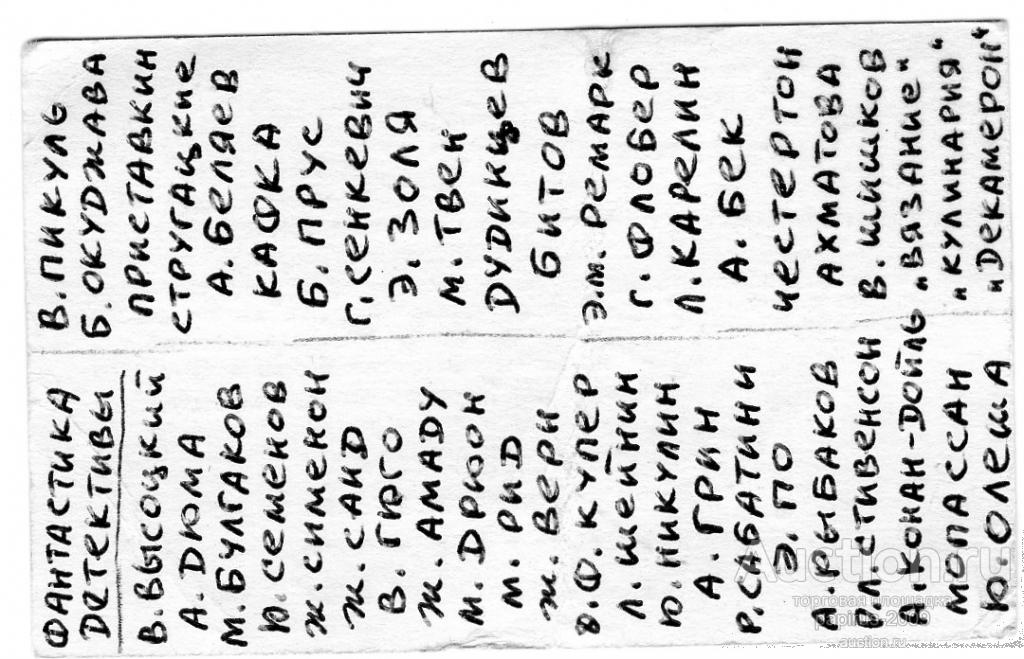 ФАНТАСТИКА
ДЕТЕКТИВЫ
В. ВЫСОЦКИЙ
А. ДЮМА
М. БУЛГАКОВ
Ю. СЕМЕНОВ
Ж. СИМЕНОН
Ж. САНД
В. ГЮГО
Ж. АМАДУ
М. ДРЮОН
М. РИД
Ж. ВЕРН
Ф. КУПЕР
Л. ШЕЙНИН
Ю. НИКУЛИН
А. ГРИН
Р. САБАТИНИ
Э. ПО
А. РЫБАКОВ
Р. Л. СТИВЕНСОН
А. КОНАН-ДОЙЛЬ
МОПАССАН
Ю. ОЛЕША
В. ПИКУЛЬ
Б. ОКУДЖАВА
ПРИСТАВКИН
СТРУГАЦКИЕ
А. БЕЛЯЕВ
КАФКА
Б. ПРУС
Г. СЕНКЕВИЧ
Э. ЗОЛЯ
М. ТВЕН
ДУДИНЦЕВ
БИТОВ
Э. М. РЕМАРК
Г. ФЛОБЕР
Л. КАРЕЛИН
А. БЕК
ЧЕСТЕРТОН
АХМАТОВА
В. ШИШКОВ
„ВЯЗАНИЕ"
„КУЛИНАРИЯ"
„ДЕКАМЕРОН"
Auction.ru
торговая площадка
papirus-2009
auction.ru